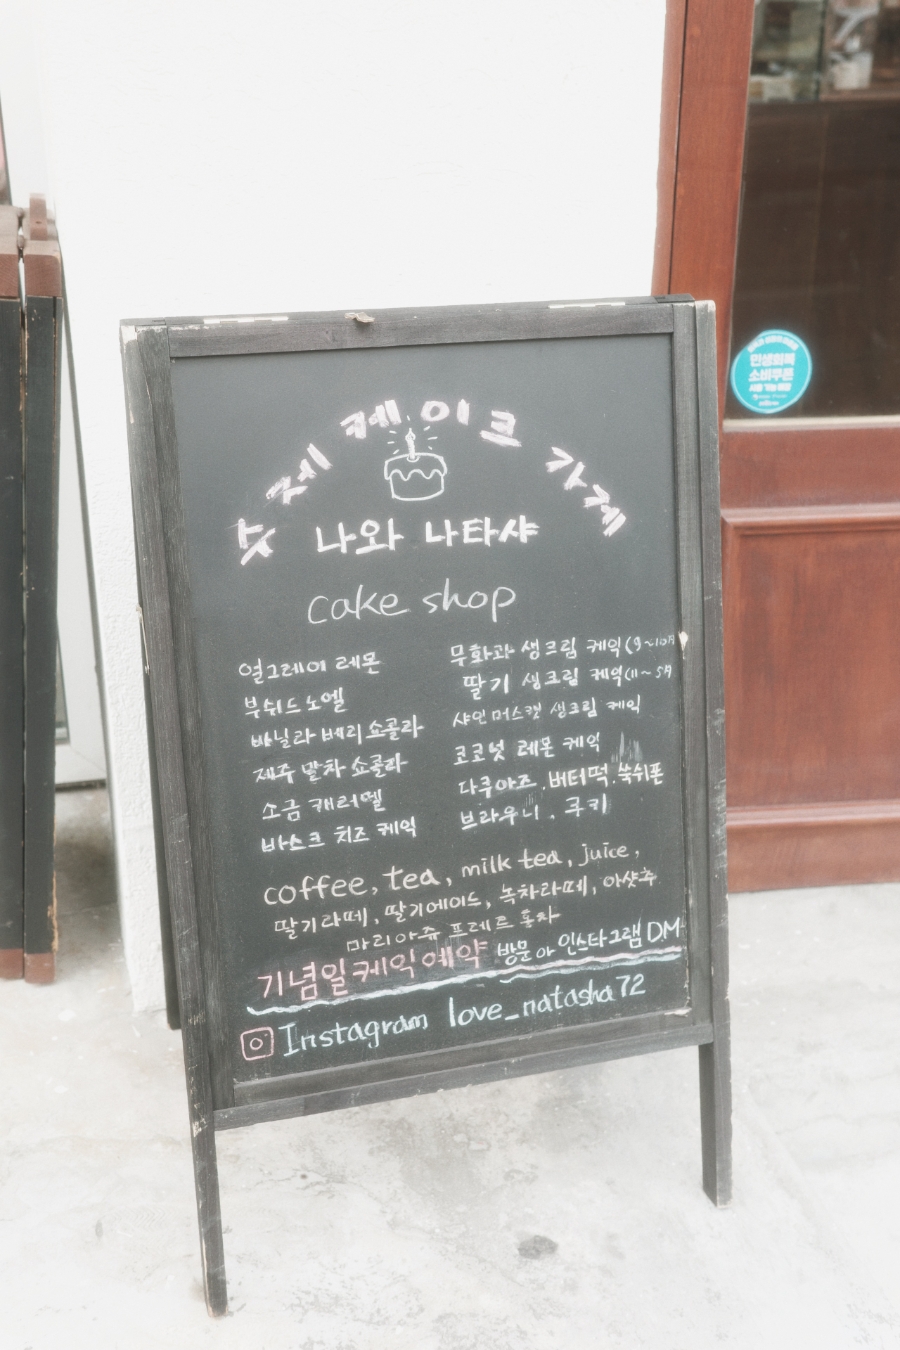 수제 케이크 가게
나와 나타샤
cake shop
얼그레이 레몬
부쉬드노엘
바닐라 베리 쇼콜라
제주 말차 쇼콜라
소금 캐러멜
바스크 치즈 케익
무화과 생크림 케익(9~10月
딸기 생크림 케익(11~5月
샤인머스캣 생크림 케익
코코넛 레몬 케익
다쿠아즈.버터떡.쑥쉬폰
브라우니. 쿠키
coffee, tea, milk tea, juice,
딸기라떼, 딸기에이드, 녹차라떼, 아샷추
마리아쥬 프레르 홍차
기념일케익예약 방문 or 인스타그램 DM
Instagram love_natasha72
민생회복
소비쿠폰